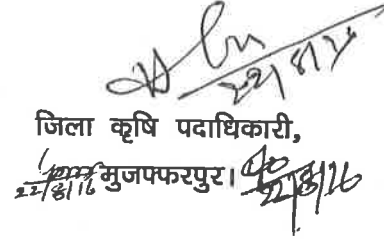 22/8/16
जिला कृषि पदाधिकारी,
22/8/16 मुजफ्फरपुर। 22/8/16